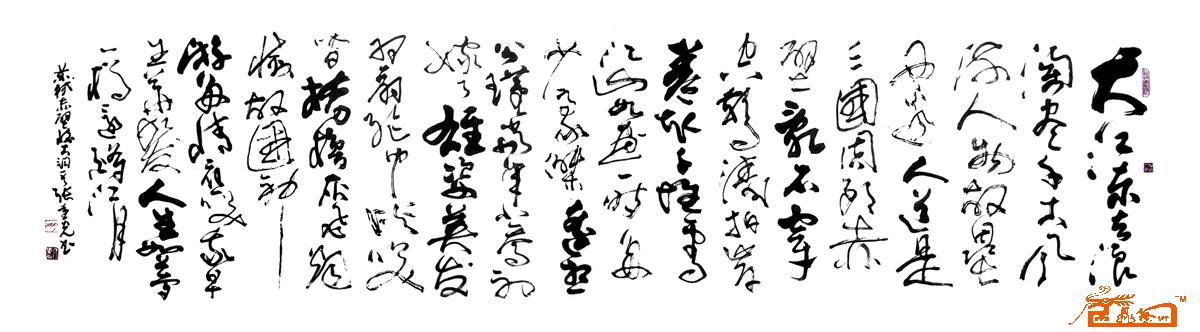 大江东去浪
淘尽千古风
流人物故垒
西边人道是
三国周郎赤
壁乱石穿
空惊涛拍岸
卷起千堆雪
江山如画一时多
少豪杰遥想
公瑾当年小乔初
嫁了雄姿英发
羽扇纶巾谈笑
间樯橹灰飞烟
灭故国神
游多情应笑我早
生华发人生如梦
一樽还酹江月